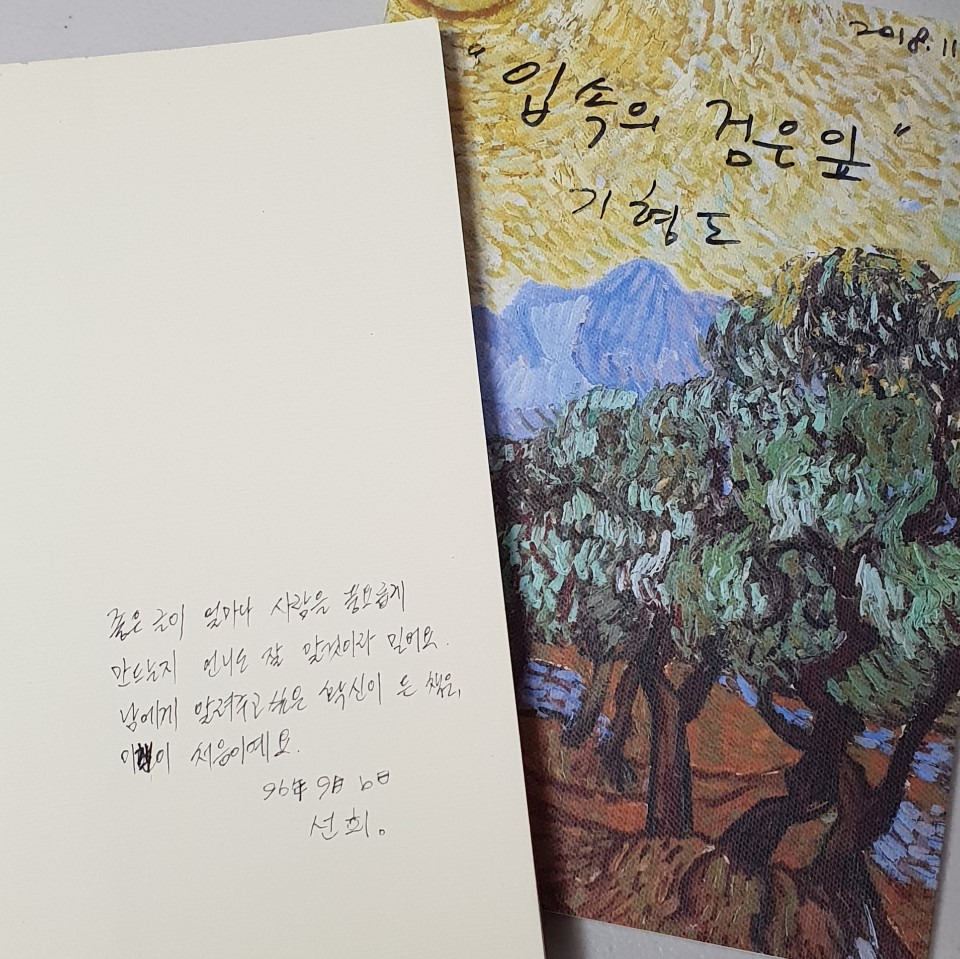 좋은 글이 얼마나 사람을 풍요롭게
만드는지 언니는 잘 알것이라 믿어요.
남에게 알려주고 싶은 확신이 든 책은,
이 이 처음이예요.
96年 9月 6日
선희.
2018.11
"입속의 검은잎"
기형도